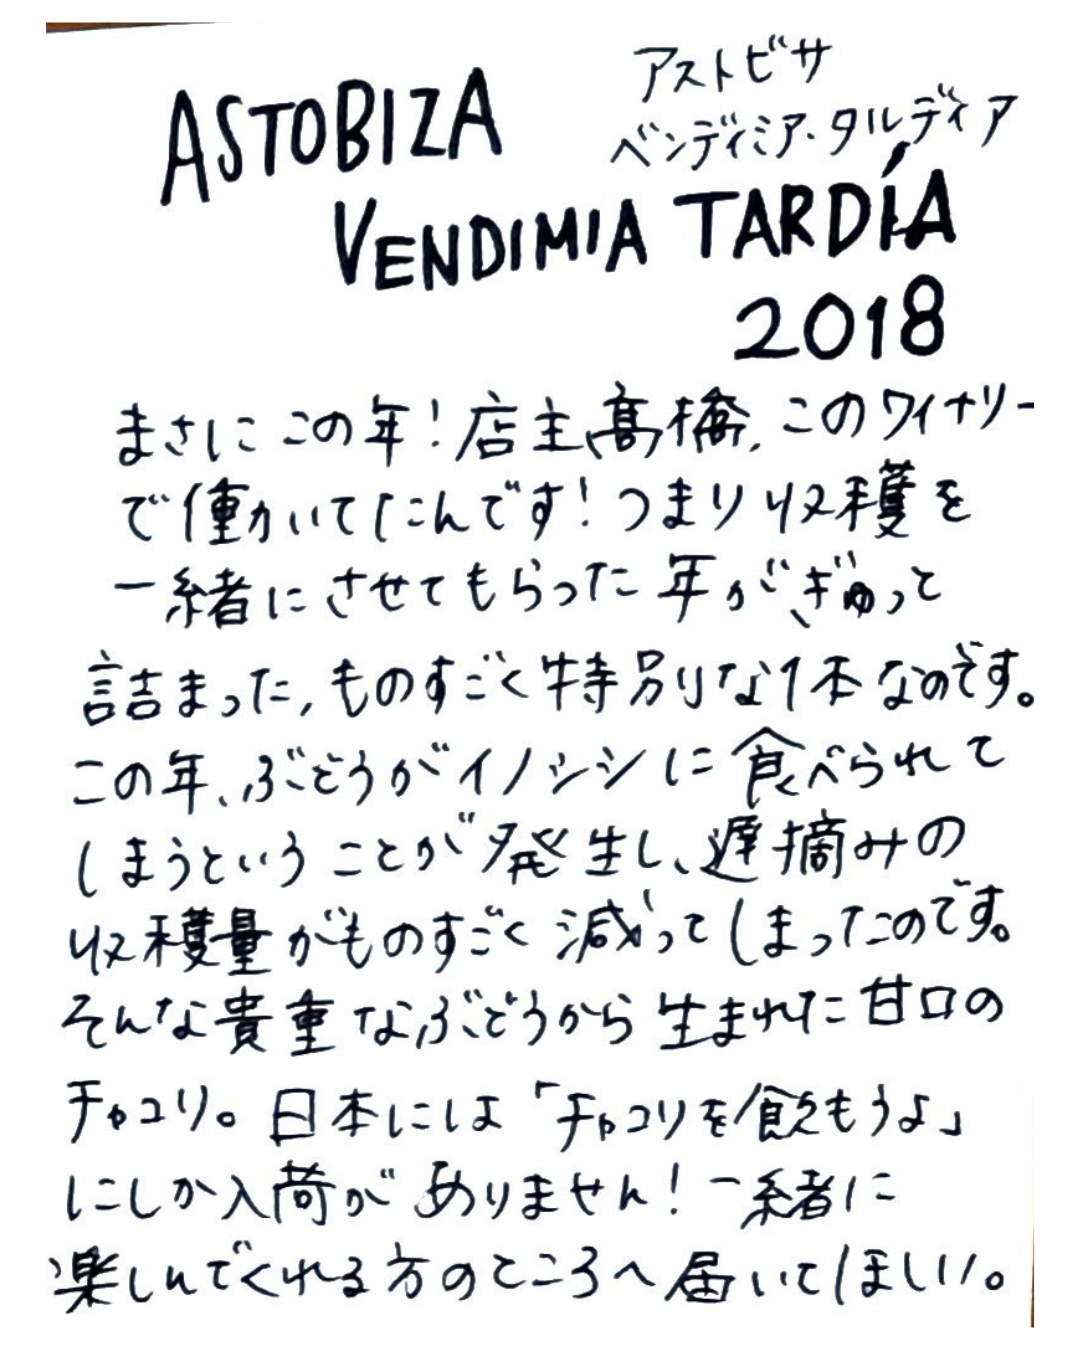 アストビサ
ベンディミア・タルディア
ASTOBIZA
VENDIMIA TARDÍA
2018
まさにこの年！店主髙橋、このワイナリー
で働いてたんです！つまり収穫を
一緒にさせてもらった年がぎゅっと
詰まった、ものすごく特別な1本なのです。
この年、ぶどうがイノシシに食べられて
しまうということが発生し、遅摘みの
収穫量がものすごく減ってしまったのです。
そんな貴重なぶどうから生まれた甘口の
チャコリ。日本には「チャコリを飲もうよ」
にしか入荷がありません！一緒に
楽しんでくれる方のところへ届いてほしい。